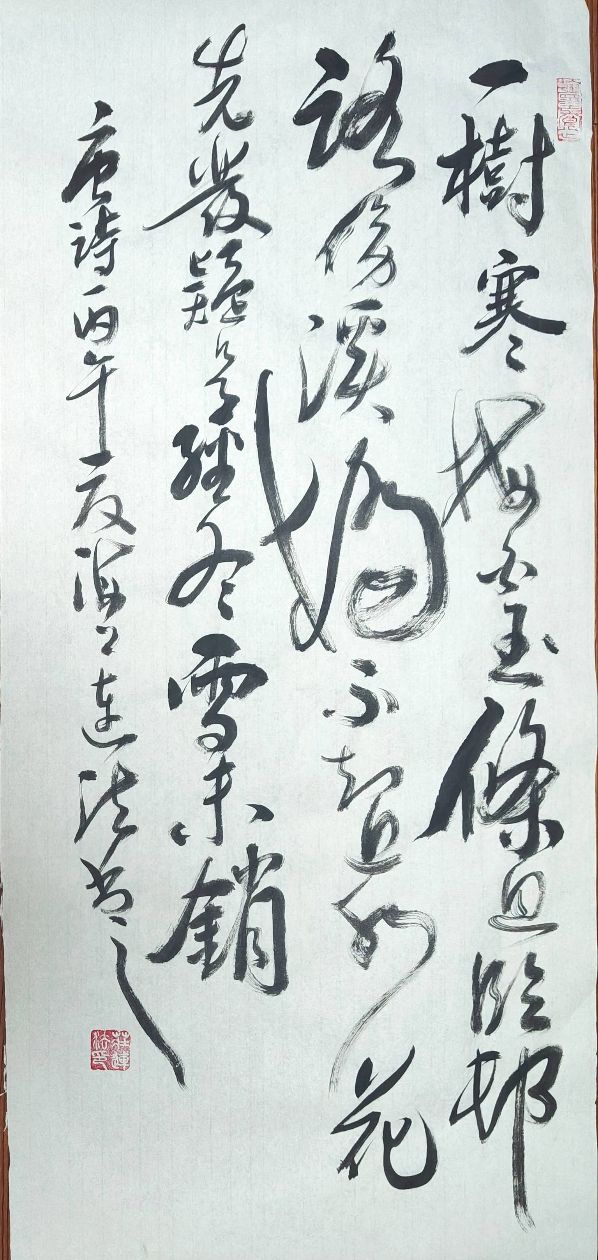 一樹寒梅白玉條迥臨邨
路傍溪橋不知近水花
先發疑是經冬雪未銷
唐詩丙午夏海上連法書之